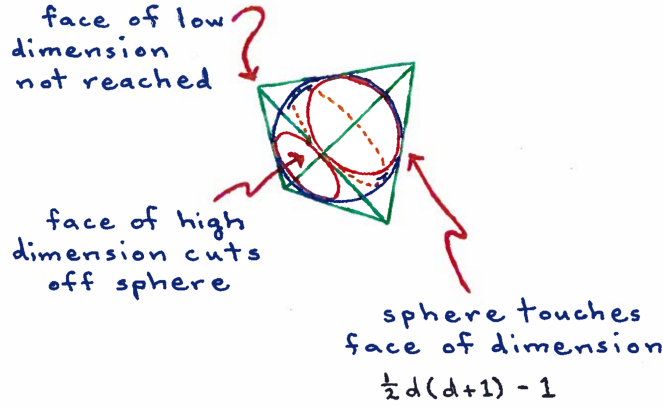 face of low
dimension
not reached
face of high
dimension cuts
off sphere
sphere touches
face of dimension
½d(d+1) - 1